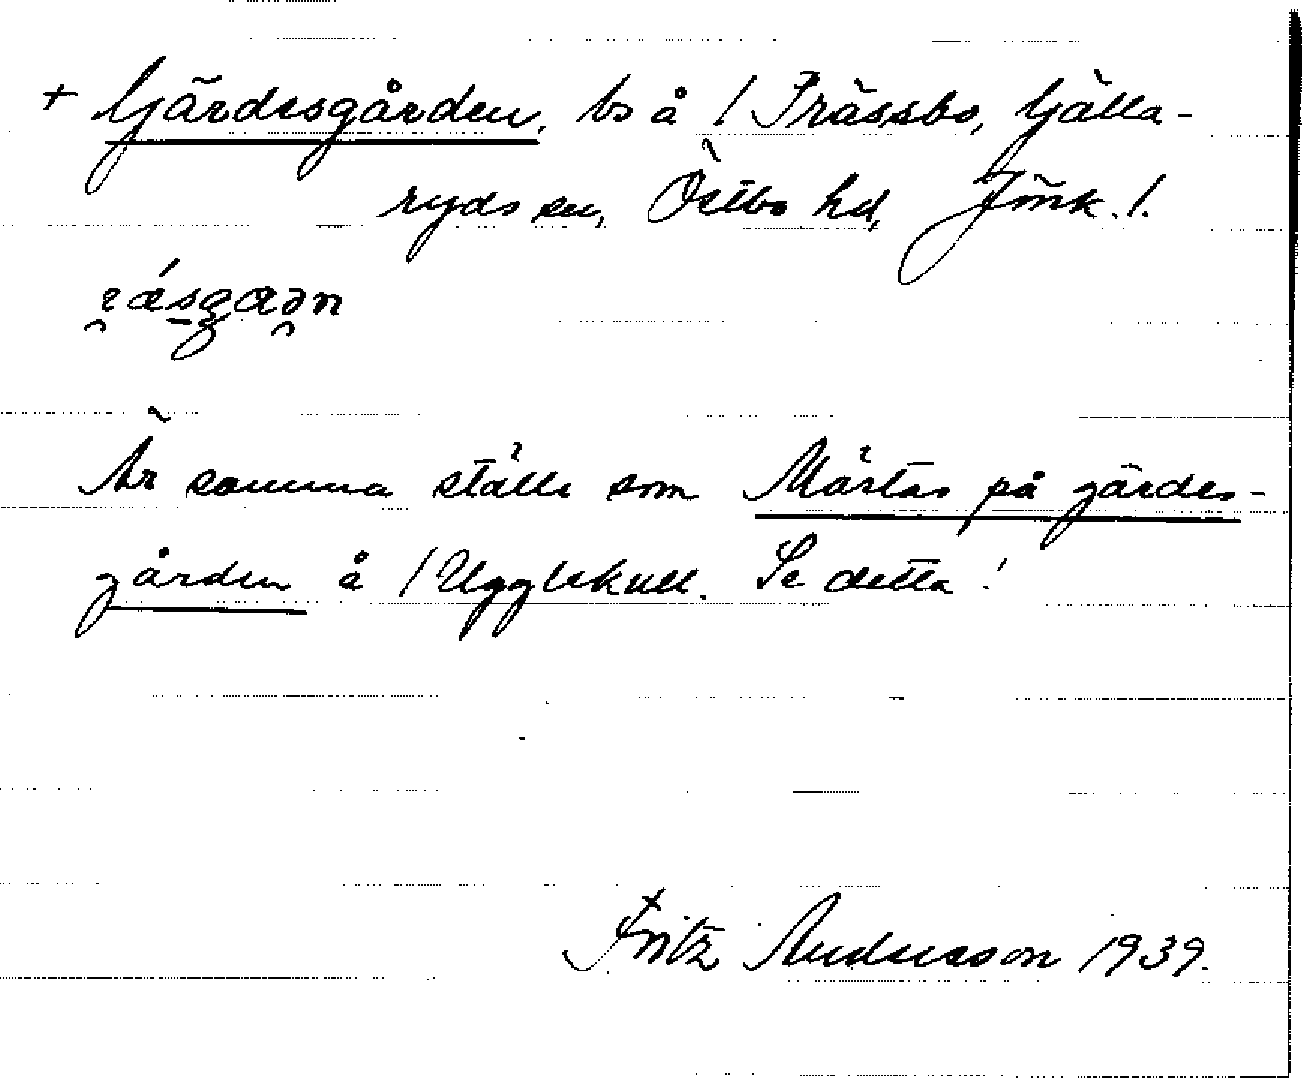 + Gärdesgården, bs å / Frässbo, Gälla-
ryds sn, Östbo hd, Jönk. l.
Är samma ställe som Märtas på gärdes-
gården å / Ugglekull. Se detta!
Fritz Andersson 1939.